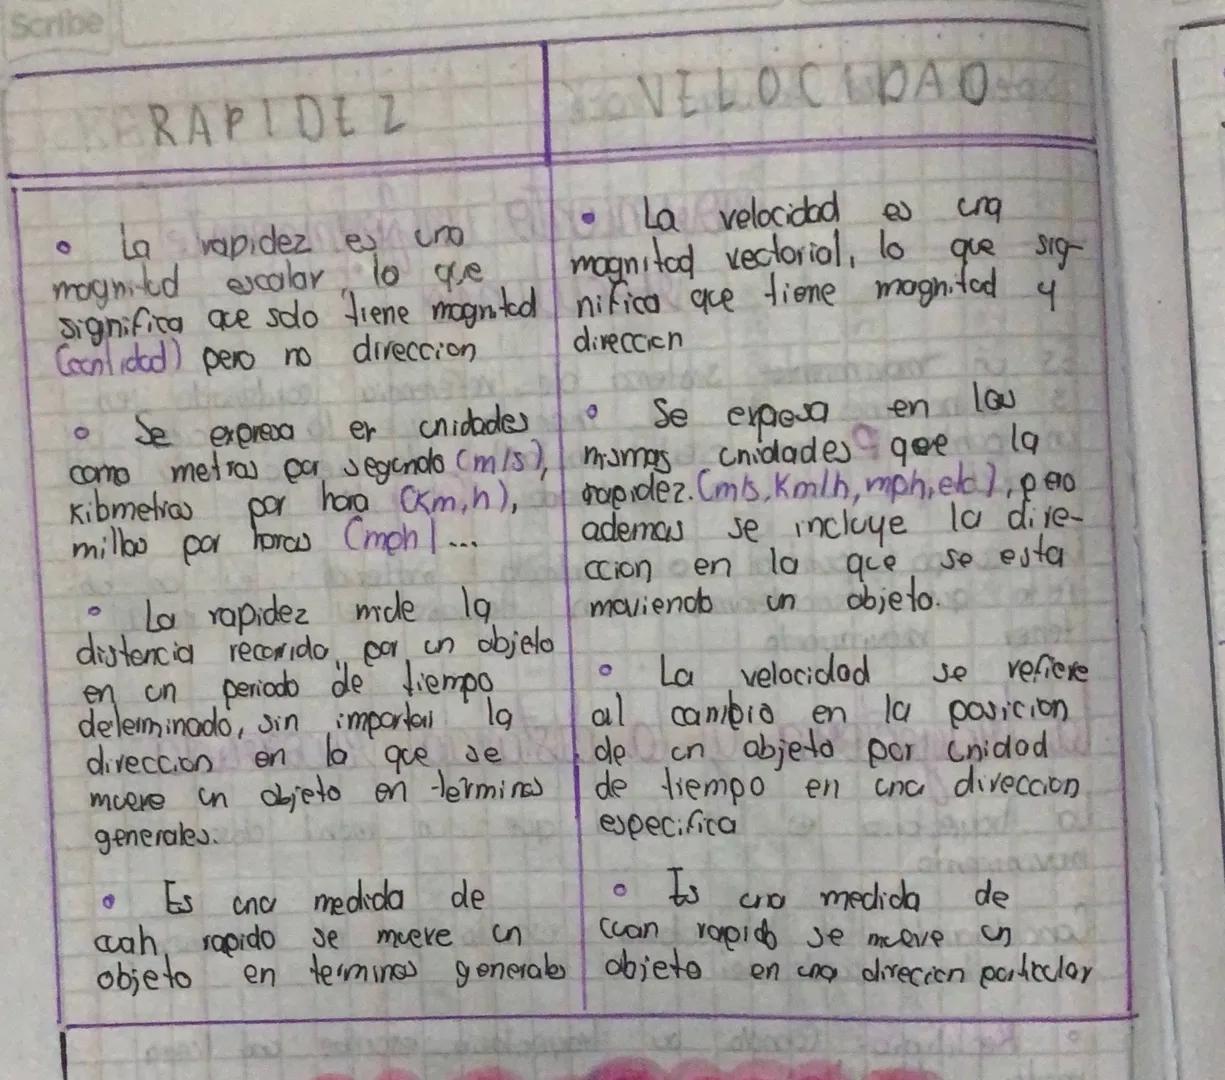 Scribe
RAPIDEZ
• La rapidez es una
magnitud escalar, lo que
significa que solo tiene magnitud
(cantidad) pero no direccion
• Se expresa en unidades
como metros por segundo (m/s),
Kilometros por hora (Km,h),
millas por horas (mph)...
• La rapidez mide la
distancia recorrida, por un objeto
en un periodo de tiempo
determinado, sin importar la
direccion en la que se
mueve un objeto en terminos
generales.
• Es una medida de
cuan rapido se mueve un
objeto en terminos generales
VELOCIDAD
• La velocidad es una
magnitud vectorial, lo que sig-
nifica que tiene magnitud y
direccion
• Se expresa en las
mismas unidades que la
rapidez. (m/s, Km/h, mph, etc), pero
ademas se incluye la dire-
ccion en la que se esta
moviendo un objeto.
• La velocidad se refiere
al cambio en la posicion
de un objeto por unidad
de tiempo en una direccion
especifica
• Es una medida de
cuan rapido se mueve un
objeto en una direccion particular